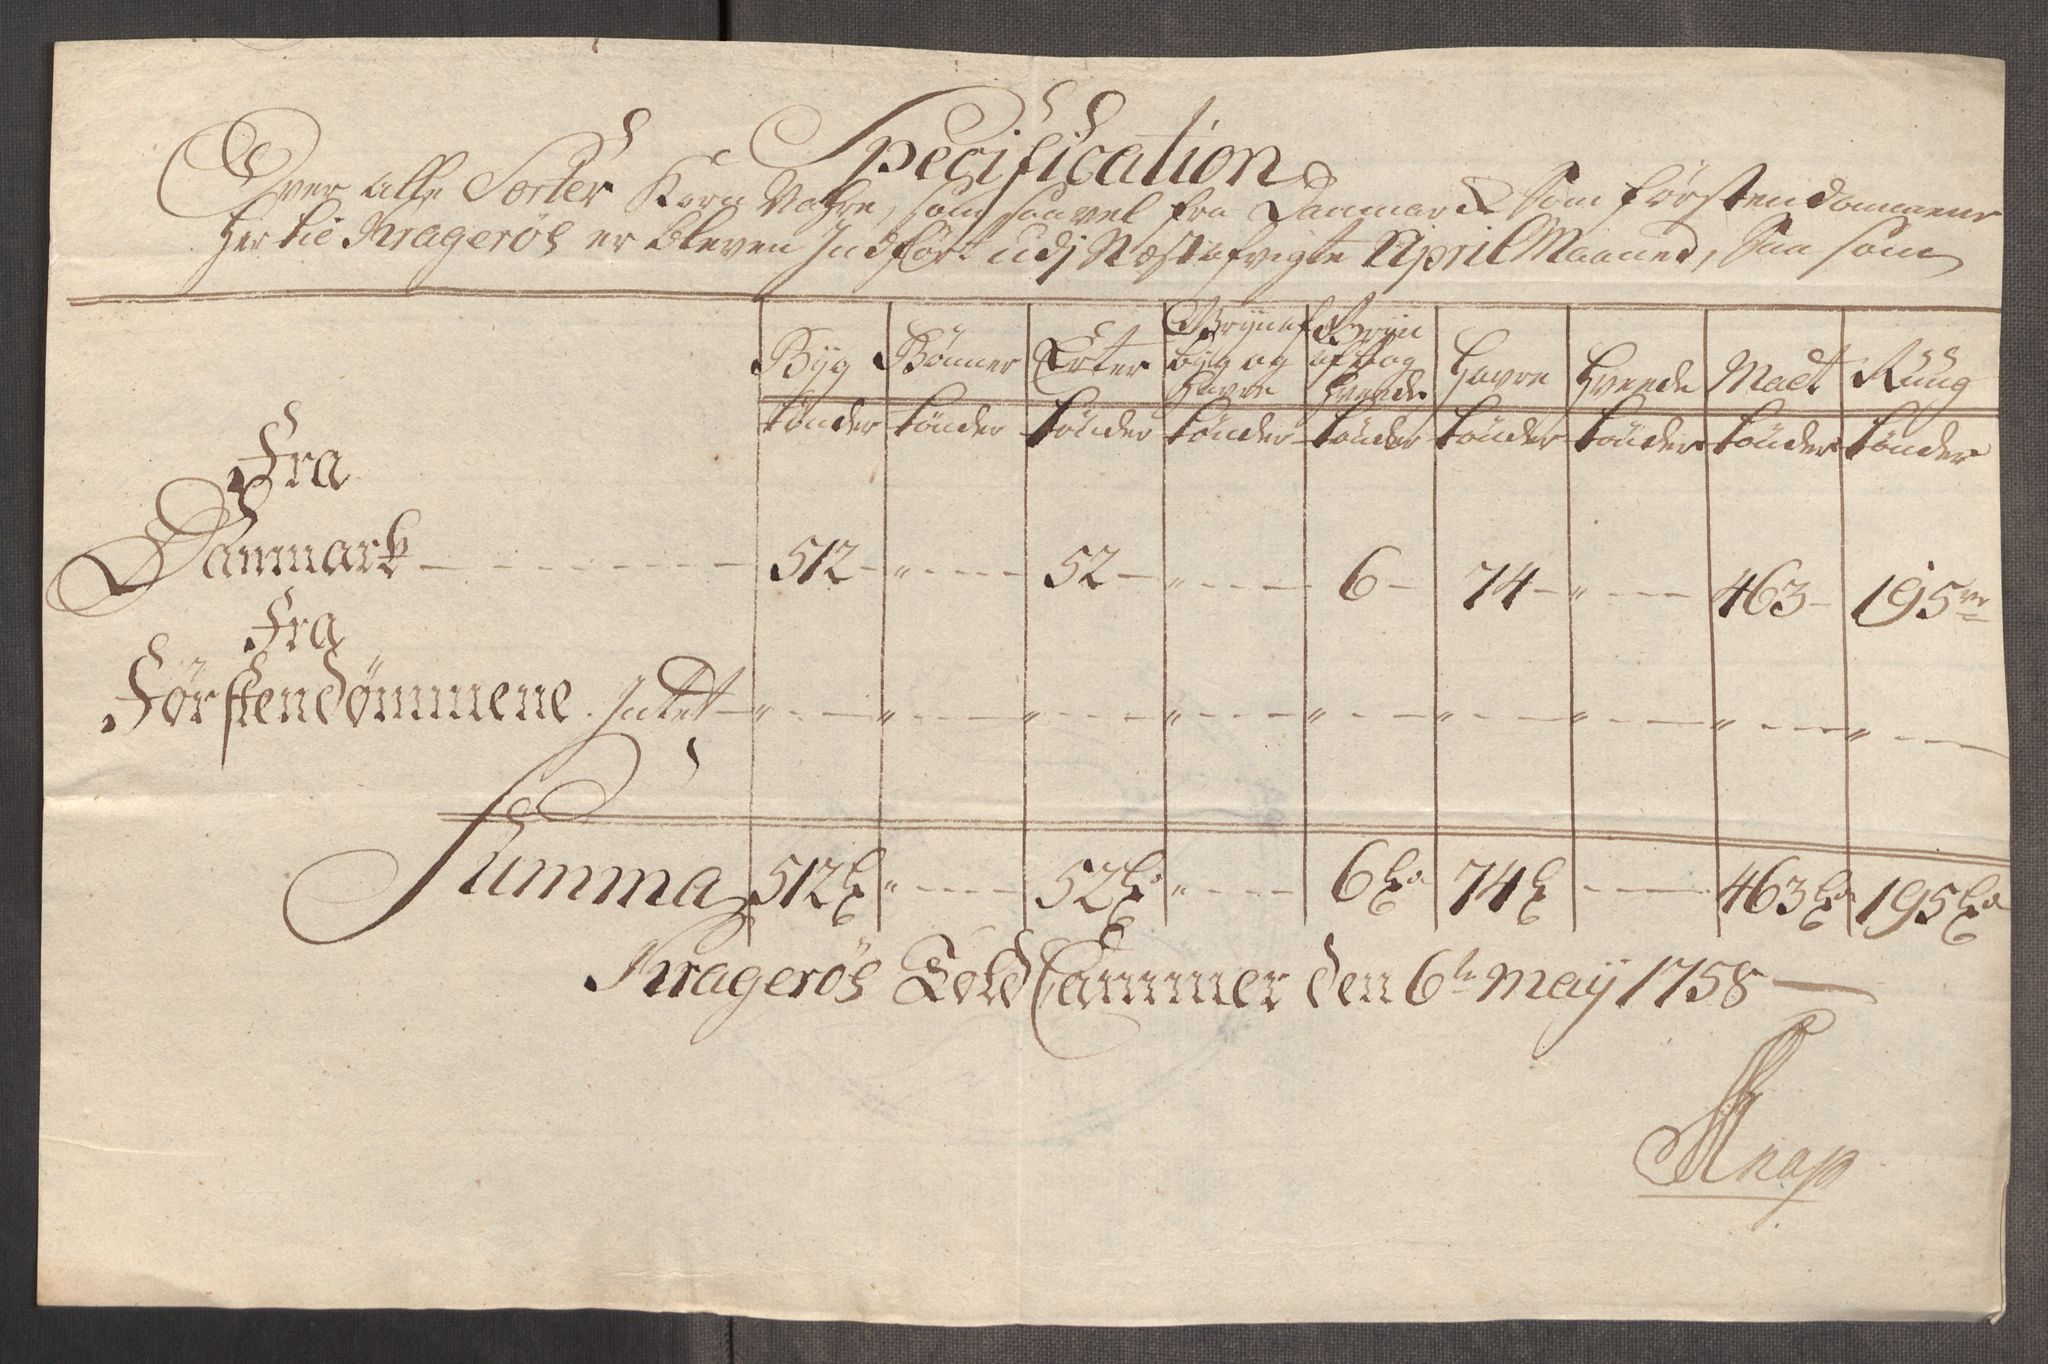 Specification
Over alle Sorter Korn Vahre, som saavel fra Danmark som Förstendommene
her til Krageröe er bleven Indfört udj Næstafvigte April Maaned, Saa som
Byg Bönner Erter Gryn af byg og Havre Gryn af Bog Hveede Havre Hveede Malt Rüüg
tönder tönder tönder tönder tönder tönder tönder tönder tönder
Fra
Danmark - - - - - 512 - " - - - 52 - " - - - 6 - 74 - " - - - 463 - 195
Fra
Förstendömmene. Intet - " - - - " - - - " - - - " - - - " - - - " - - - " - - - " - - - " - - -
Summa 512 " - - - 52 " - - - 6 74 - - - 463 195
Krageröes Told Cammer den 6te Maÿ 1758
Knap